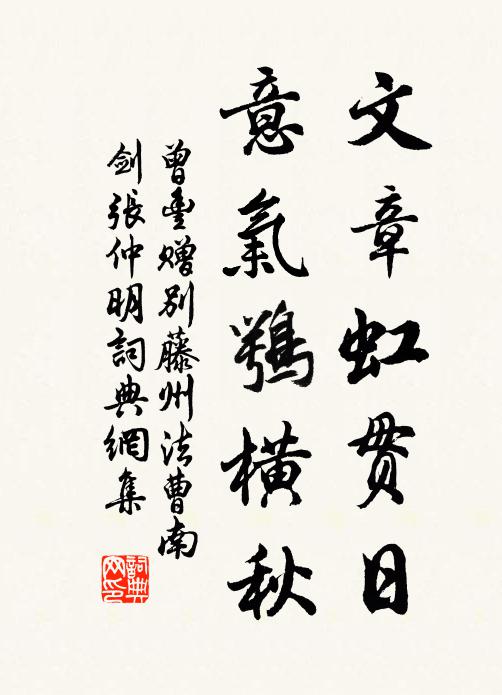 文章虹貫日
意氣鶚橫秋
曾豐贈別藤州法曹南
劍張仲明詞典網集
詞典
网印